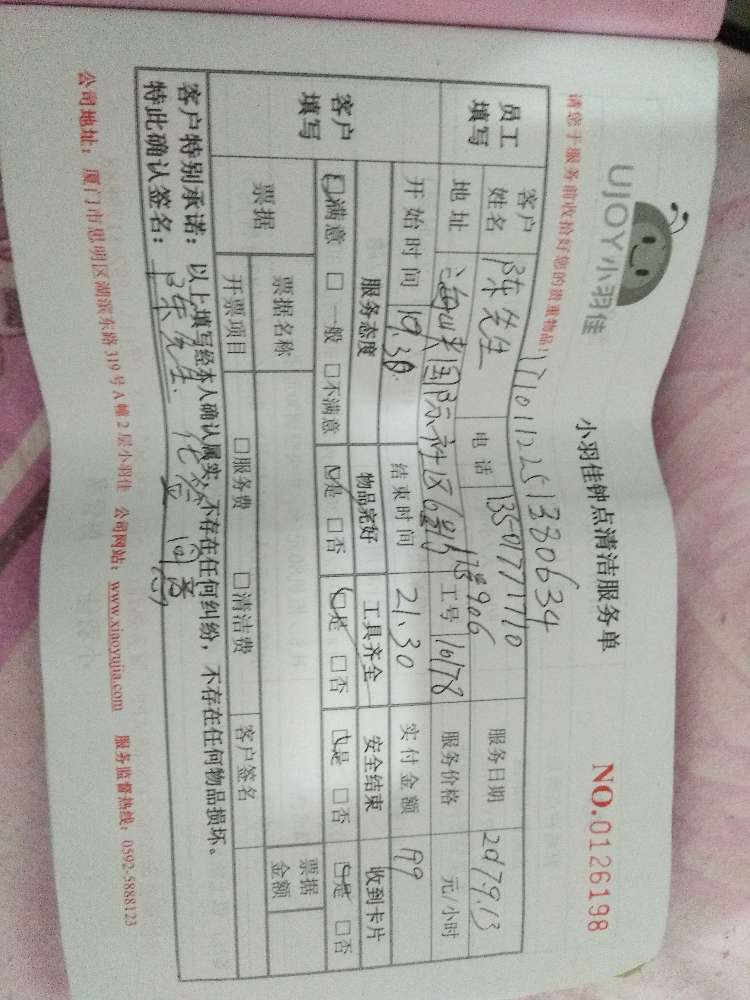 UJOY小羽佳
小羽佳钟点清洁服务单
NO.0126198
请您于服务前收拾好您的贵重物品!
员工填写
客户姓名 陈先生 电话 13501771710 服务日期
地址 国际社区 工号 10178 服务价格 元/小时
开始时间 19.30 结束时间 21.30 实付金额
客户填写
服务态度 物品完好 工具齐全 安全结束 收到卡片
□满意 □一般 □不满意 □是 □否 □是 □否 □是 □否 □是 □否
票据 票据名称 票据金额
开票项目 □服务费 □清洁费 客户签名
客户特别承诺:以上填写经本人确认属实,不存在任何纠纷,不存在任何物品损坏。
特此确认签名:陈先生 代签 同意
公司地址:厦门市思明区湖滨东路319号A幢2层小羽佳 公司网站:www.xiaoyujia.com 服务监督热线:0592-5888123